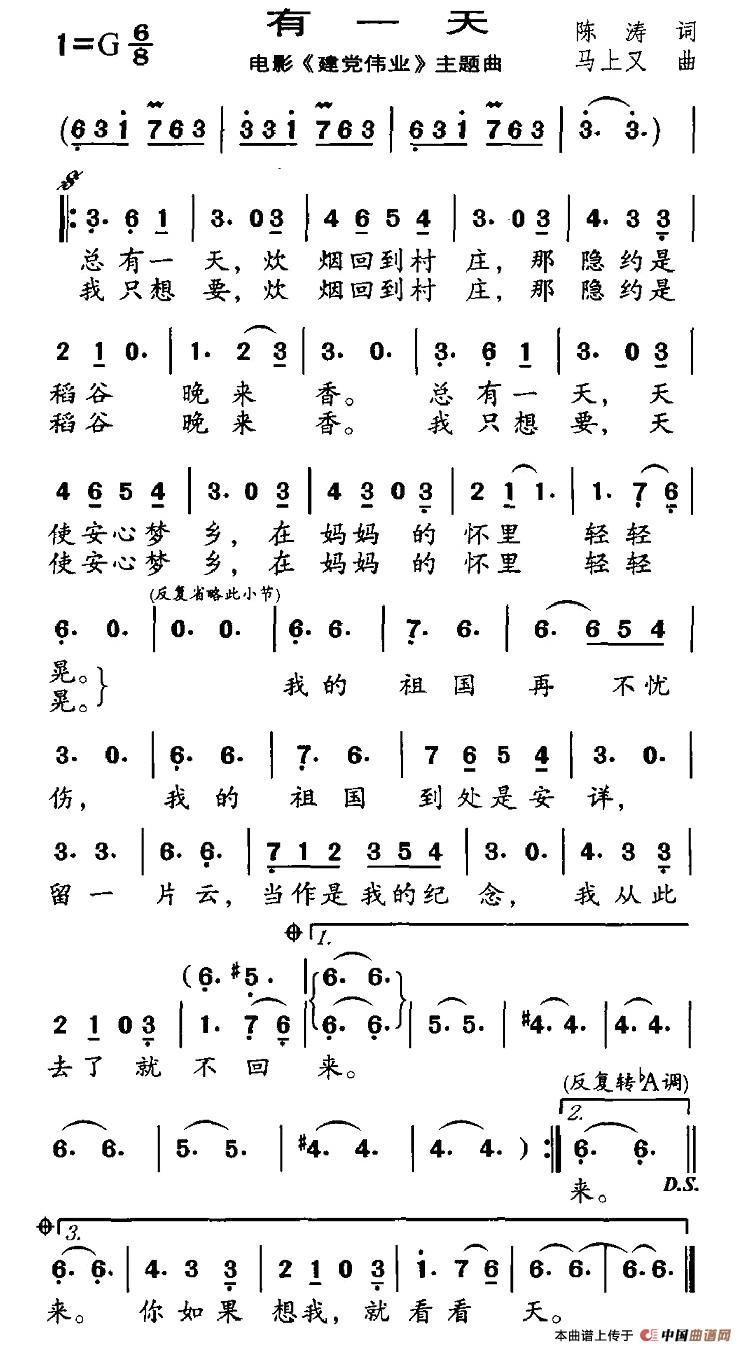 有一天
1=G 6/8
电影《建党伟业》主题曲
陈涛 词
马上又 曲
(6 3 1 7 6 3 | 3 3 1 7 6 3 | 6 3 1 7 6 3 | 3. 3. )
𝄋
‖: 3. 6 1 | 3. 0 3 | 4 6 5 4 | 3. 0 3 | 4. 3 3
总有一天,炊烟回到村庄,那隐约是
我只想要,炊烟回到村庄,那隐约是
2 1 0. | 1. 2 3 | 3. 0. | 3. 6 1 | 3. 0 3
稻谷 晚来香。 总有一天,天
稻谷 晚来香。 我只想要,天
4 6 5 4 | 3. 0 3 | 4 3 0 3 | 2 1 1. | 1. 7 6
使安心梦乡,在妈妈的怀里 轻轻
使安心梦乡,在妈妈的怀里 轻轻
(反复省略此小节)
6. 0. | 0. 0. | 6. 6. | 7. 6. | 6. 6 5 4
晃。 我的祖国再不忧
晃。
3. 0. | 6. 6. | 7. 6. | 7 6 5 4 | 3. 0.
伤, 我的祖国到处是安详,
3. 3. | 6. 6. | 7 1 2 3 5 4 | 3. 0. | 4. 3 3
留一片云,当作是我的纪念,我从此
𝄌 1.
(6. #5. | 6. 6.
2 1 0 3 | 1. 7 6 | 6. 6. | 5. 5. | #4. 4. | 4. 4. |
去了就不回来。
(反复转♭A调)
2.
6. 6. | 5. 5. | #4. 4. | 4. 4. ) :‖ 6. 6. ‖
来。 D.S.
𝄌 3.
6. 6. | 4. 3 3 | 2 1 0 3 | 1. 7 6 | 6. 6. | 6. 6. ‖
来。你如果想我,就看看天。
本曲谱上传于 中国曲谱网